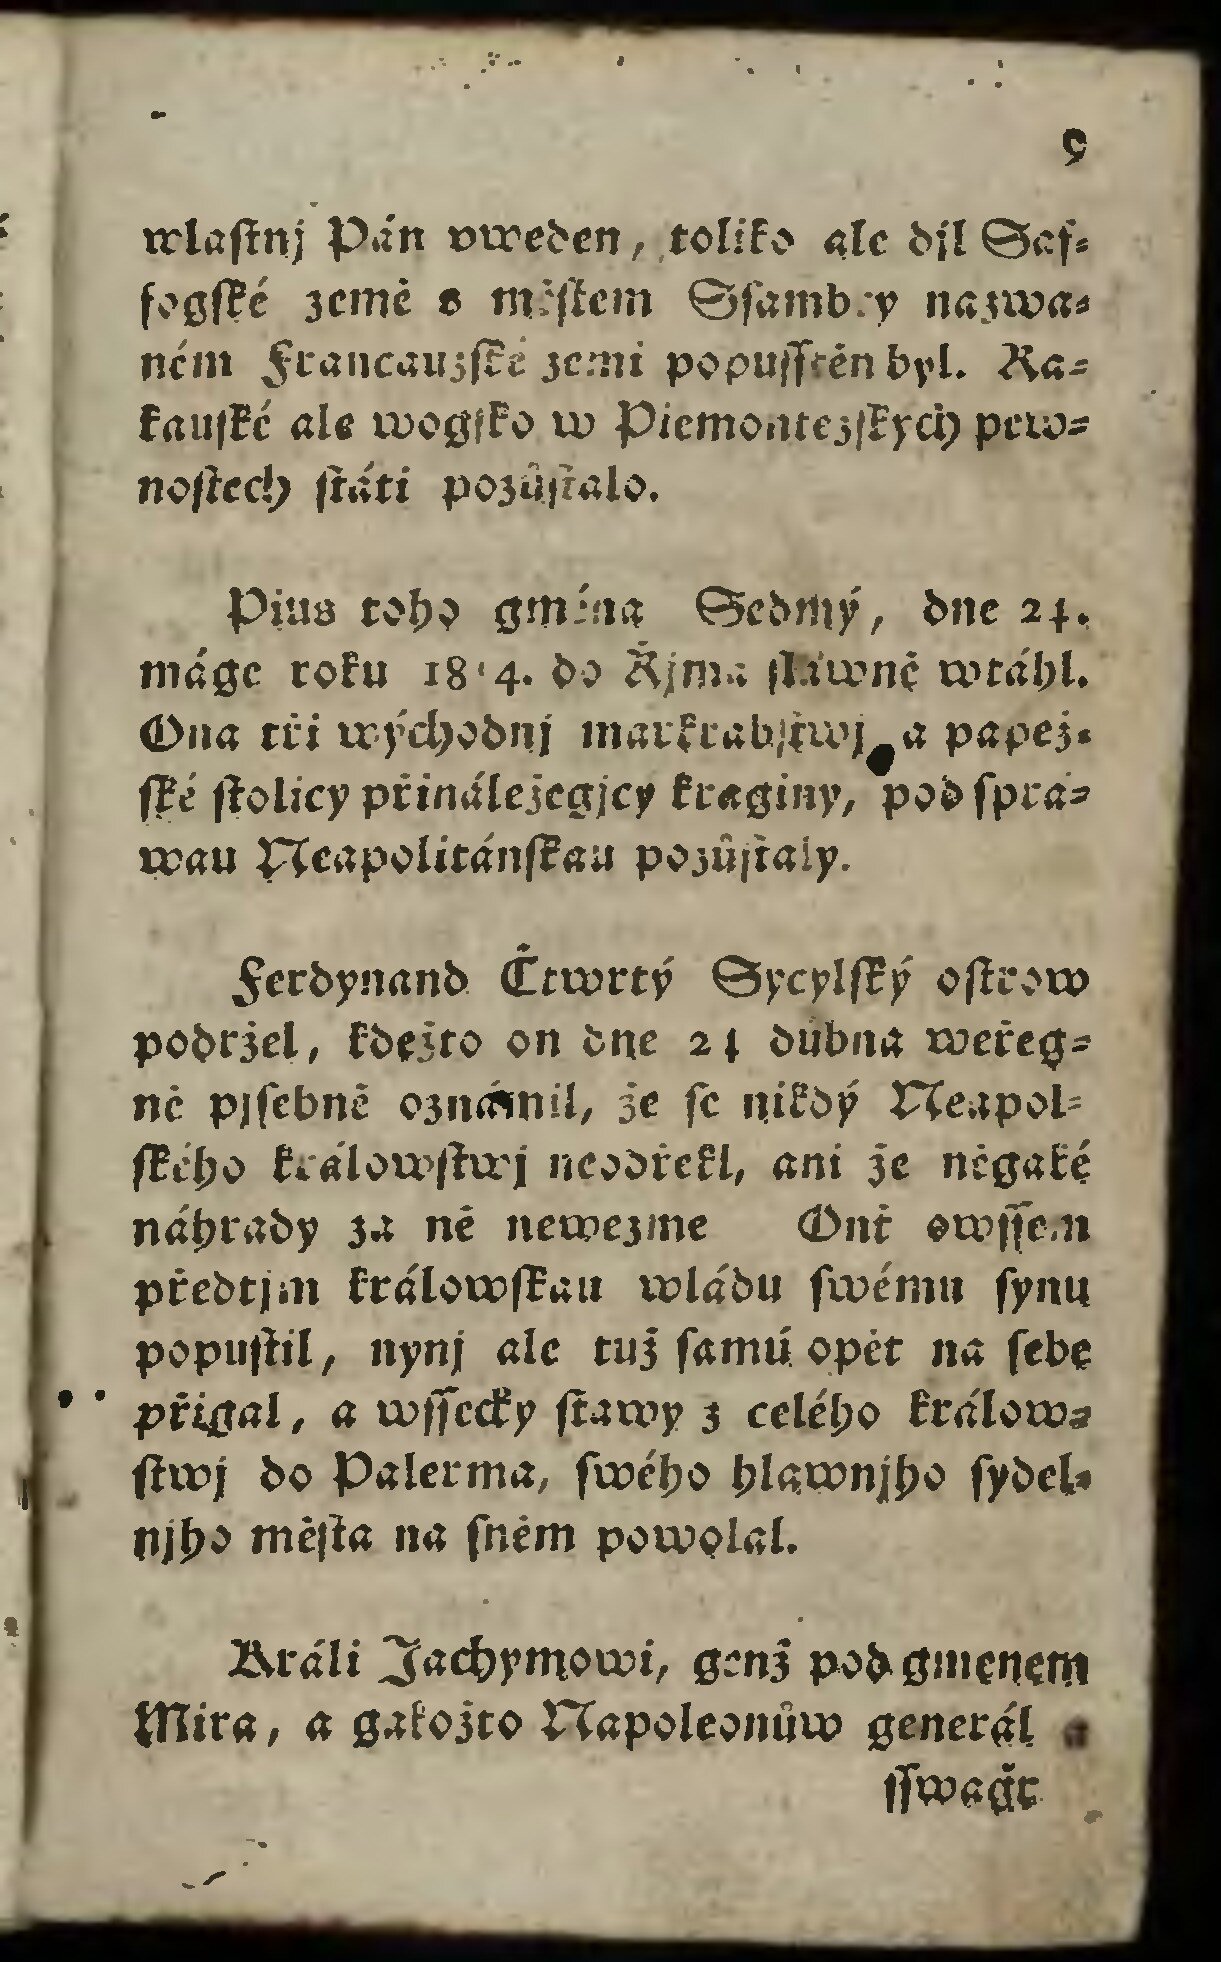 9
wlaſtnj Pán vweden, toliko ale djl Saf⸗
fogſké země s městem Sſambry nazwa⸗
ném Francauzſké zemi popuſſtěn byl. Ra⸗
kauſké ale wogſko w Piemontezſkých pew⸗
noſtech ſtáti pozůſtalo.
Pius toho gména Sedmý, dne 24.
máge roku 1814. do Řjma ſlawně wtáhl.
Ona tři východnj markrabſtwj a papež⸗
ſké ſtolicy přináležegjcy kraginy, pod ſprá⸗
wau Neapolitánſkau pozůſtaly.
Ferdynand Čtwrtý Sycylſký oſtrow
podržel, kdežto on dne 24 dubna weřeg⸗
ně pjſebně oznámil, že ſe nikdý Neapol⸗
ſkého králowſtwj neodřekl, ani že něgaké
náhrady za ně newezme Onť owſſem
předtjm králowſkau wládu ſwému ſynu
popuſtil, nynj ale tuž ſamú opět na ſebe
přigal, a wſſecky ſtawy z celého králow⸗
ſtwj do Palerma, ſwého hlawnjho ſydel⸗
njho měſta na ſněm powolal.
Králi Jachymowi, genž pod gmenem
Mira, a gakožto Napoleonůw generál a
ſſwagr